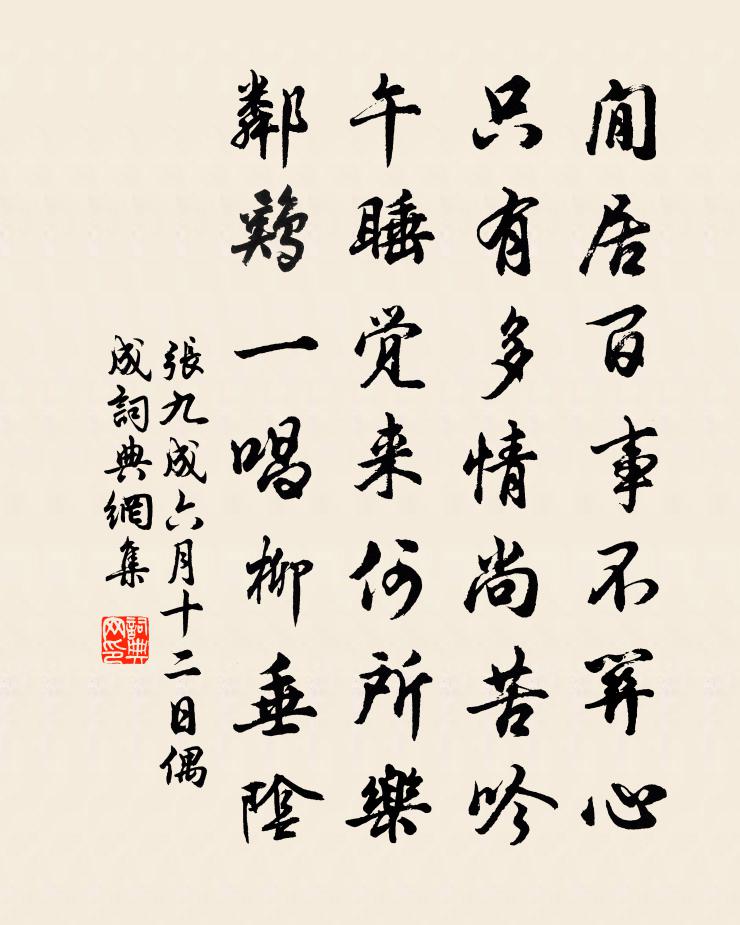 閒居百事不關心
只有多情尚苦吟
午睡覚来何所樂
鄰鷄一唱柳垂陰
張九成六月十二日偶
成詞典網集
詞典网印